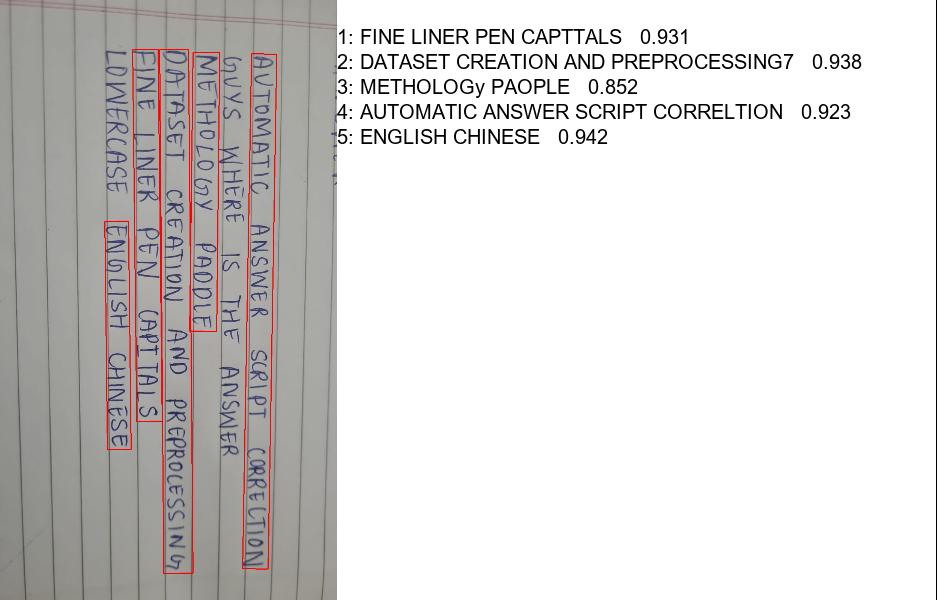 AUTOMATIC ANSWER SCRIPT CORRECTION
GUYS WHERE IS THE ANSWER
METHOLOGY PADDLE
DATASET CREATION AND PREPROCESSING
FINE LINER PEN CAPITALS
LOWERCASE ENGLISH CHINESE
1: FINE LINER PEN CAPTTALS 0.931
2: DATASET CREATION AND PREPROCESSING7 0.938
3: METHOLOGy PAOPLE 0.852
4: AUTOMATIC ANSWER SCRIPT CORRELTION 0.923
5: ENGLISH CHINESE 0.942